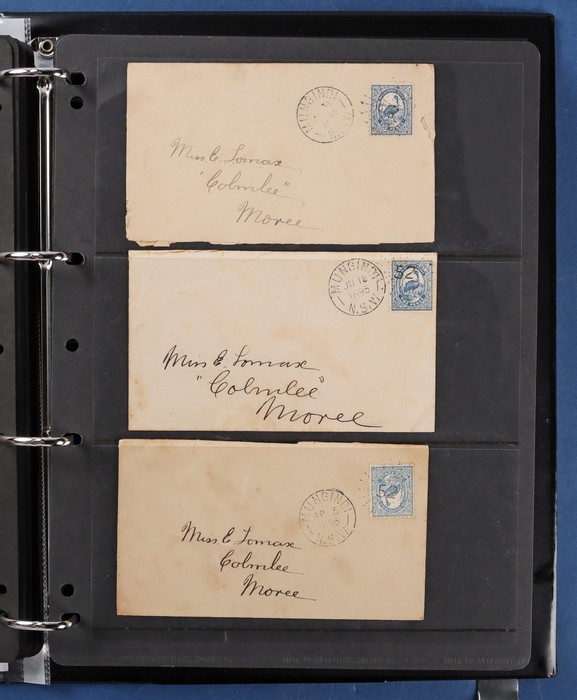 MUNGINDI
N.S.W.
Miss E. Lomax
"Colmlee"
Moree
MUNGINDI
JU 18
1895
N.S.W.
Miss E. Lomax
"Colmlee"
Moree
MUNGINDI
AP 5
1895
N.S.W.
52
Miss E. Lomax
Colmlee
Moree